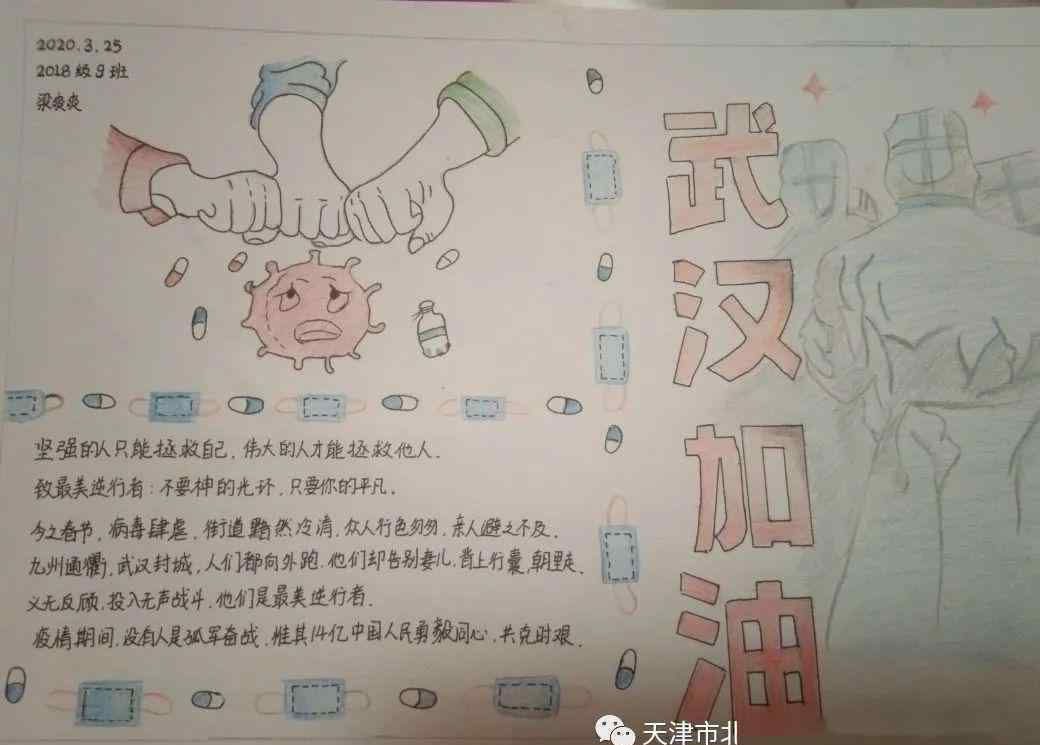 2020.3.25
2018级9班
梁炎炎
武汉加油
坚强的人只能拯救自己，伟大的人才能拯救他人。
致最美逆行者：不要神的光环，只要你的平凡。
今之春节，病毒肆虐，街道黯然冷清，众人行色匆匆，亲人避之不及。
九州通衢，武汉封城，人们都向外跑，他们却告别妻儿，背上行囊，朝里走，
义无反顾，投入无声战斗，他们是最美逆行者。
疫情期间，没有人是孤军奋战，惟其14亿中国人民勇毅同心，共克时艰。
天津市北